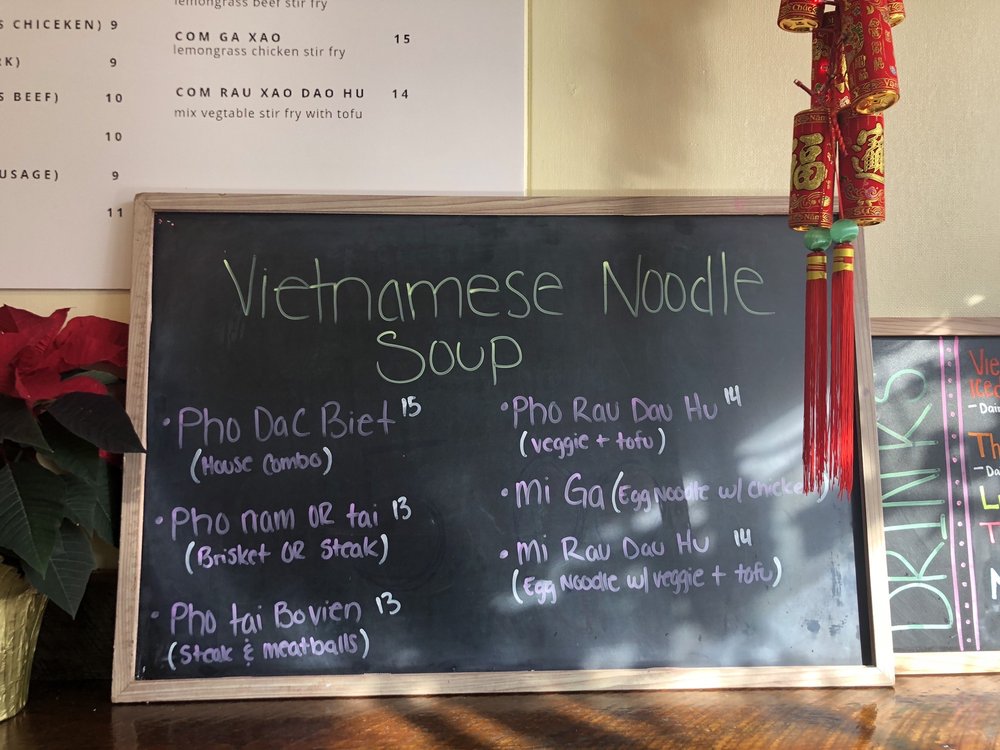 lemongrass beef stir fry
COM GA XAO 15
lemongrass chicken stir fry
COM RAU XAO DAO HU 14
mix vegtable stir fry with tofu
CHICEKEN) 9
9
BEEF) 10
10
9
11
Vietnamese Noodle
Soup
• Pho Dac Biet 15
(House Combo)
• Pho nam OR tai 13
(Brisket OR Steak)
• Pho tai Bo vien 13
(Steak & meatballs)
• Pho Rau Dau Hu 14
(veggie + tofu)
• Mi Ga (Egg Noodle w/ chicken)
• Mi Rau Dau Hu 14
(Egg Noodle w/ veggie + tofu)
福
DRINKS